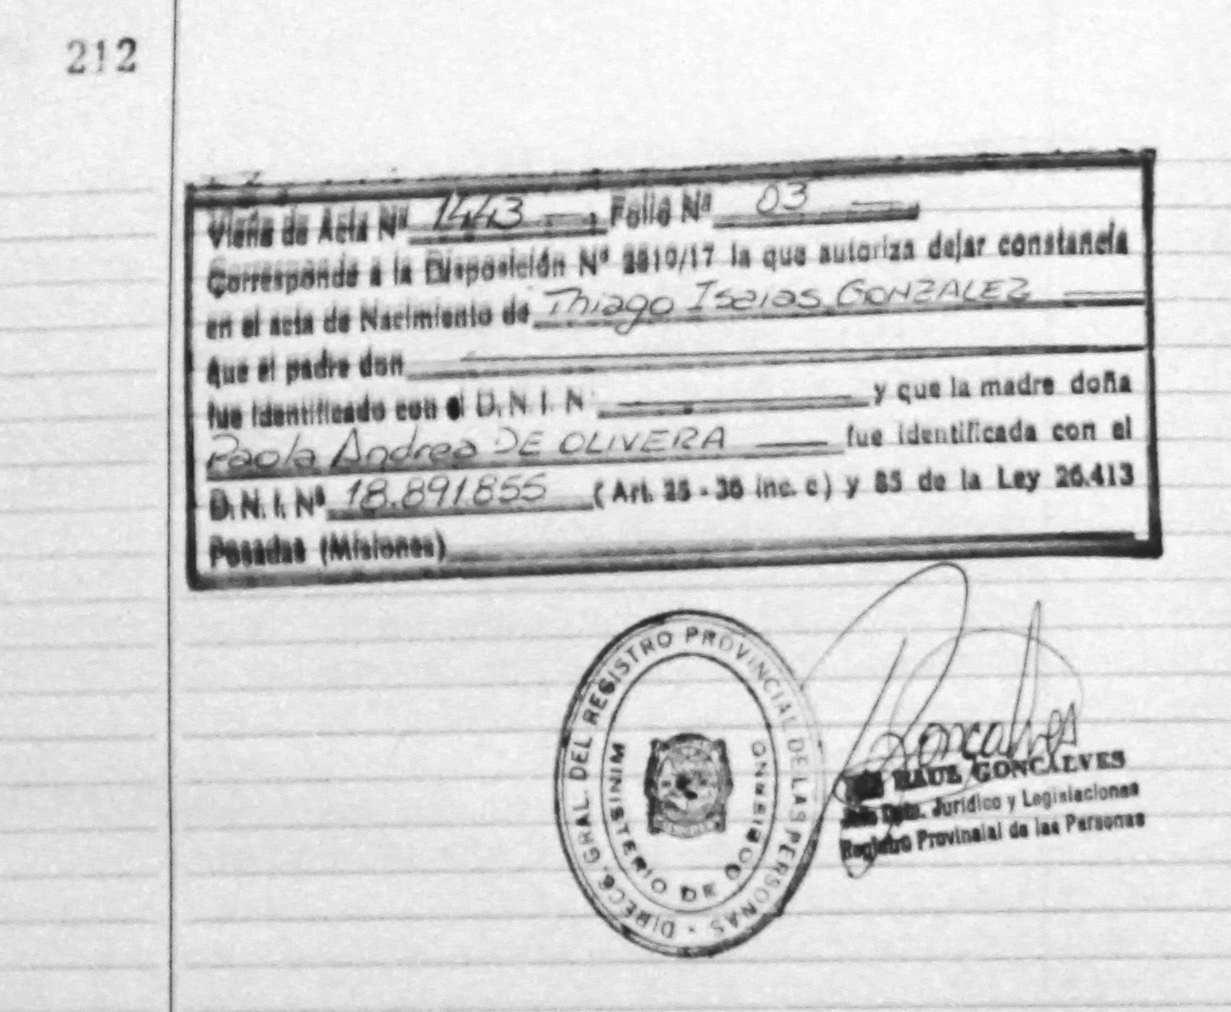 212
Viene de Acta Nº 1443 Folio Nº 03
Corresponde a la Disposición Nº 2810/17 la que autoriza dejar constancia
en el acta de Nacimiento de Thiago Isaias GONZALEZ
que el padre don
fue identificado con el D.N.I.N y que la madre doña
Paola Andrea DE OLIVERA fue identificada con el
D.N.I. Nº 18.891.855 (Art. 25 - 36 inc. c) y 85 de la Ley 26.413
Posadas (Misiones)
DIREC. GRAL. DEL REGISTRO PROVINCIAL DE LAS PERSONAS
MINISTERIO DE GOBIERNO
Goncalves
RAUL GONCALVES
Jefe Dpto. Jurídico y Legislaciones
Registro Provincial de las Personas